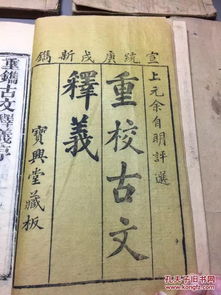 宣統庚戌新鐫
上元余自明評選
重校古文
釋義
寶興堂藏板
重鐫古文釋義序